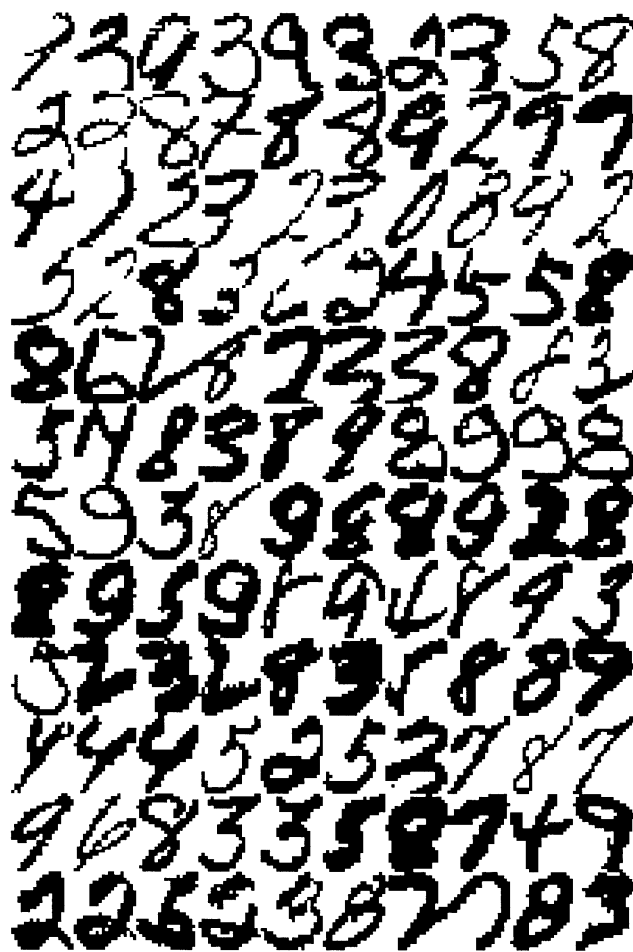 7 3 9 3 9 3 2 3 5 8
2 2 8 7 8 8 9 2 9 7
4 1 2 3 2 3 0 8 9 2
5 2 8 3 2 4 5 5 8
8 2 8 7 3 3 8 8 3
5 4 8 3 8 9 8 9 9 8
5 9 3 8 9 8 8 9 2 8
8 9 5 9 8 9 4 8 9 3
5 2 3 2 8 3 8 8 9
4 4 4 5 2 5 3 7 8 7
9 6 8 3 3 5 8 7 4 9
2 2 5 2 3 8 7 8 3